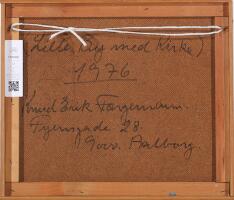 (Lille By med Kirke)
1976
Knud Erik Færgemann.
Fyensgade 28.
9000. Aalborg.